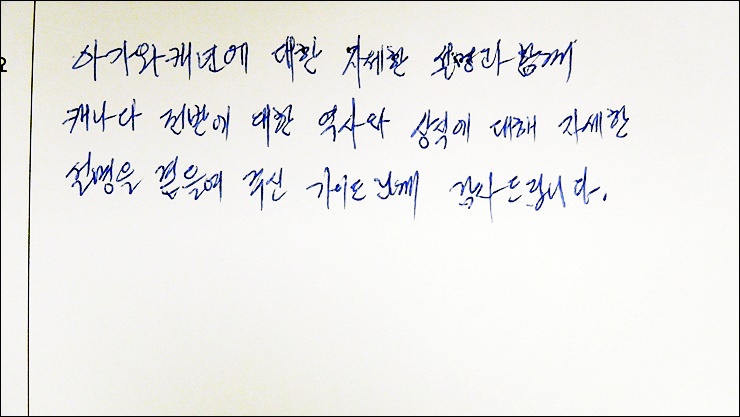 아가와캐년에 대한 자세한 설명과 함께
캐나다 전반에 대한 역사와 상식에 대해 자세한
설명을 곁들여 주신 가이드님께 감사드립니다.